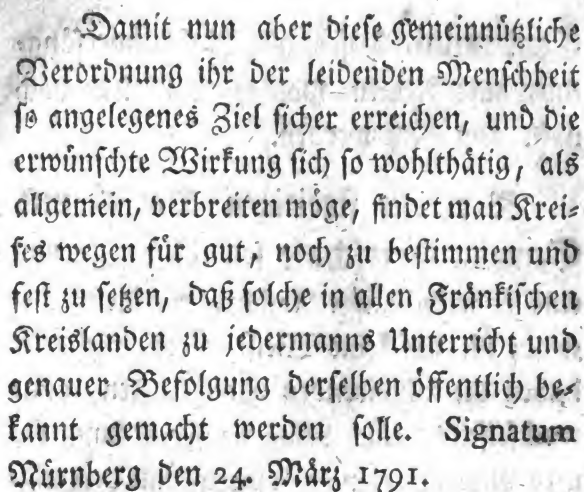 Damit nun aber diese gemeinnützliche
Verordnung ihr der leidenden Menschheit
so angelegenes Ziel sicher erreichen, und die
erwünschte Wirkung sich so wohlthätig, als
allgemein, verbreiten möge, findet man Krei-
ses wegen für gut, noch zu bestimmen und
fest zu setzen, daß solche in allen Fränkischen
Kreislanden zu jedermanns Unterricht und
genauer Befolgung derselben öffentlich be-
kannt gemacht werden solle. Signatum
Nürnberg den 24. März 1791.